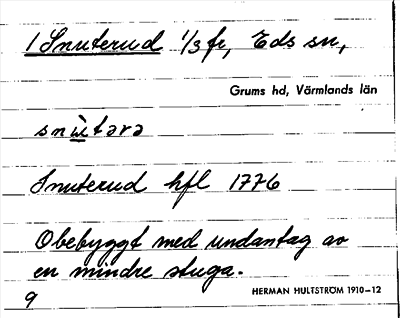 1 Snuterud 1/3 fr, Eds sn,
Grums hd, Värmlands län
snùtərə
Snuterud hfl 1776
Obebyggt med undantag av
en mindre stuga.
9
HERMAN HULTSTRÖM 1910-12